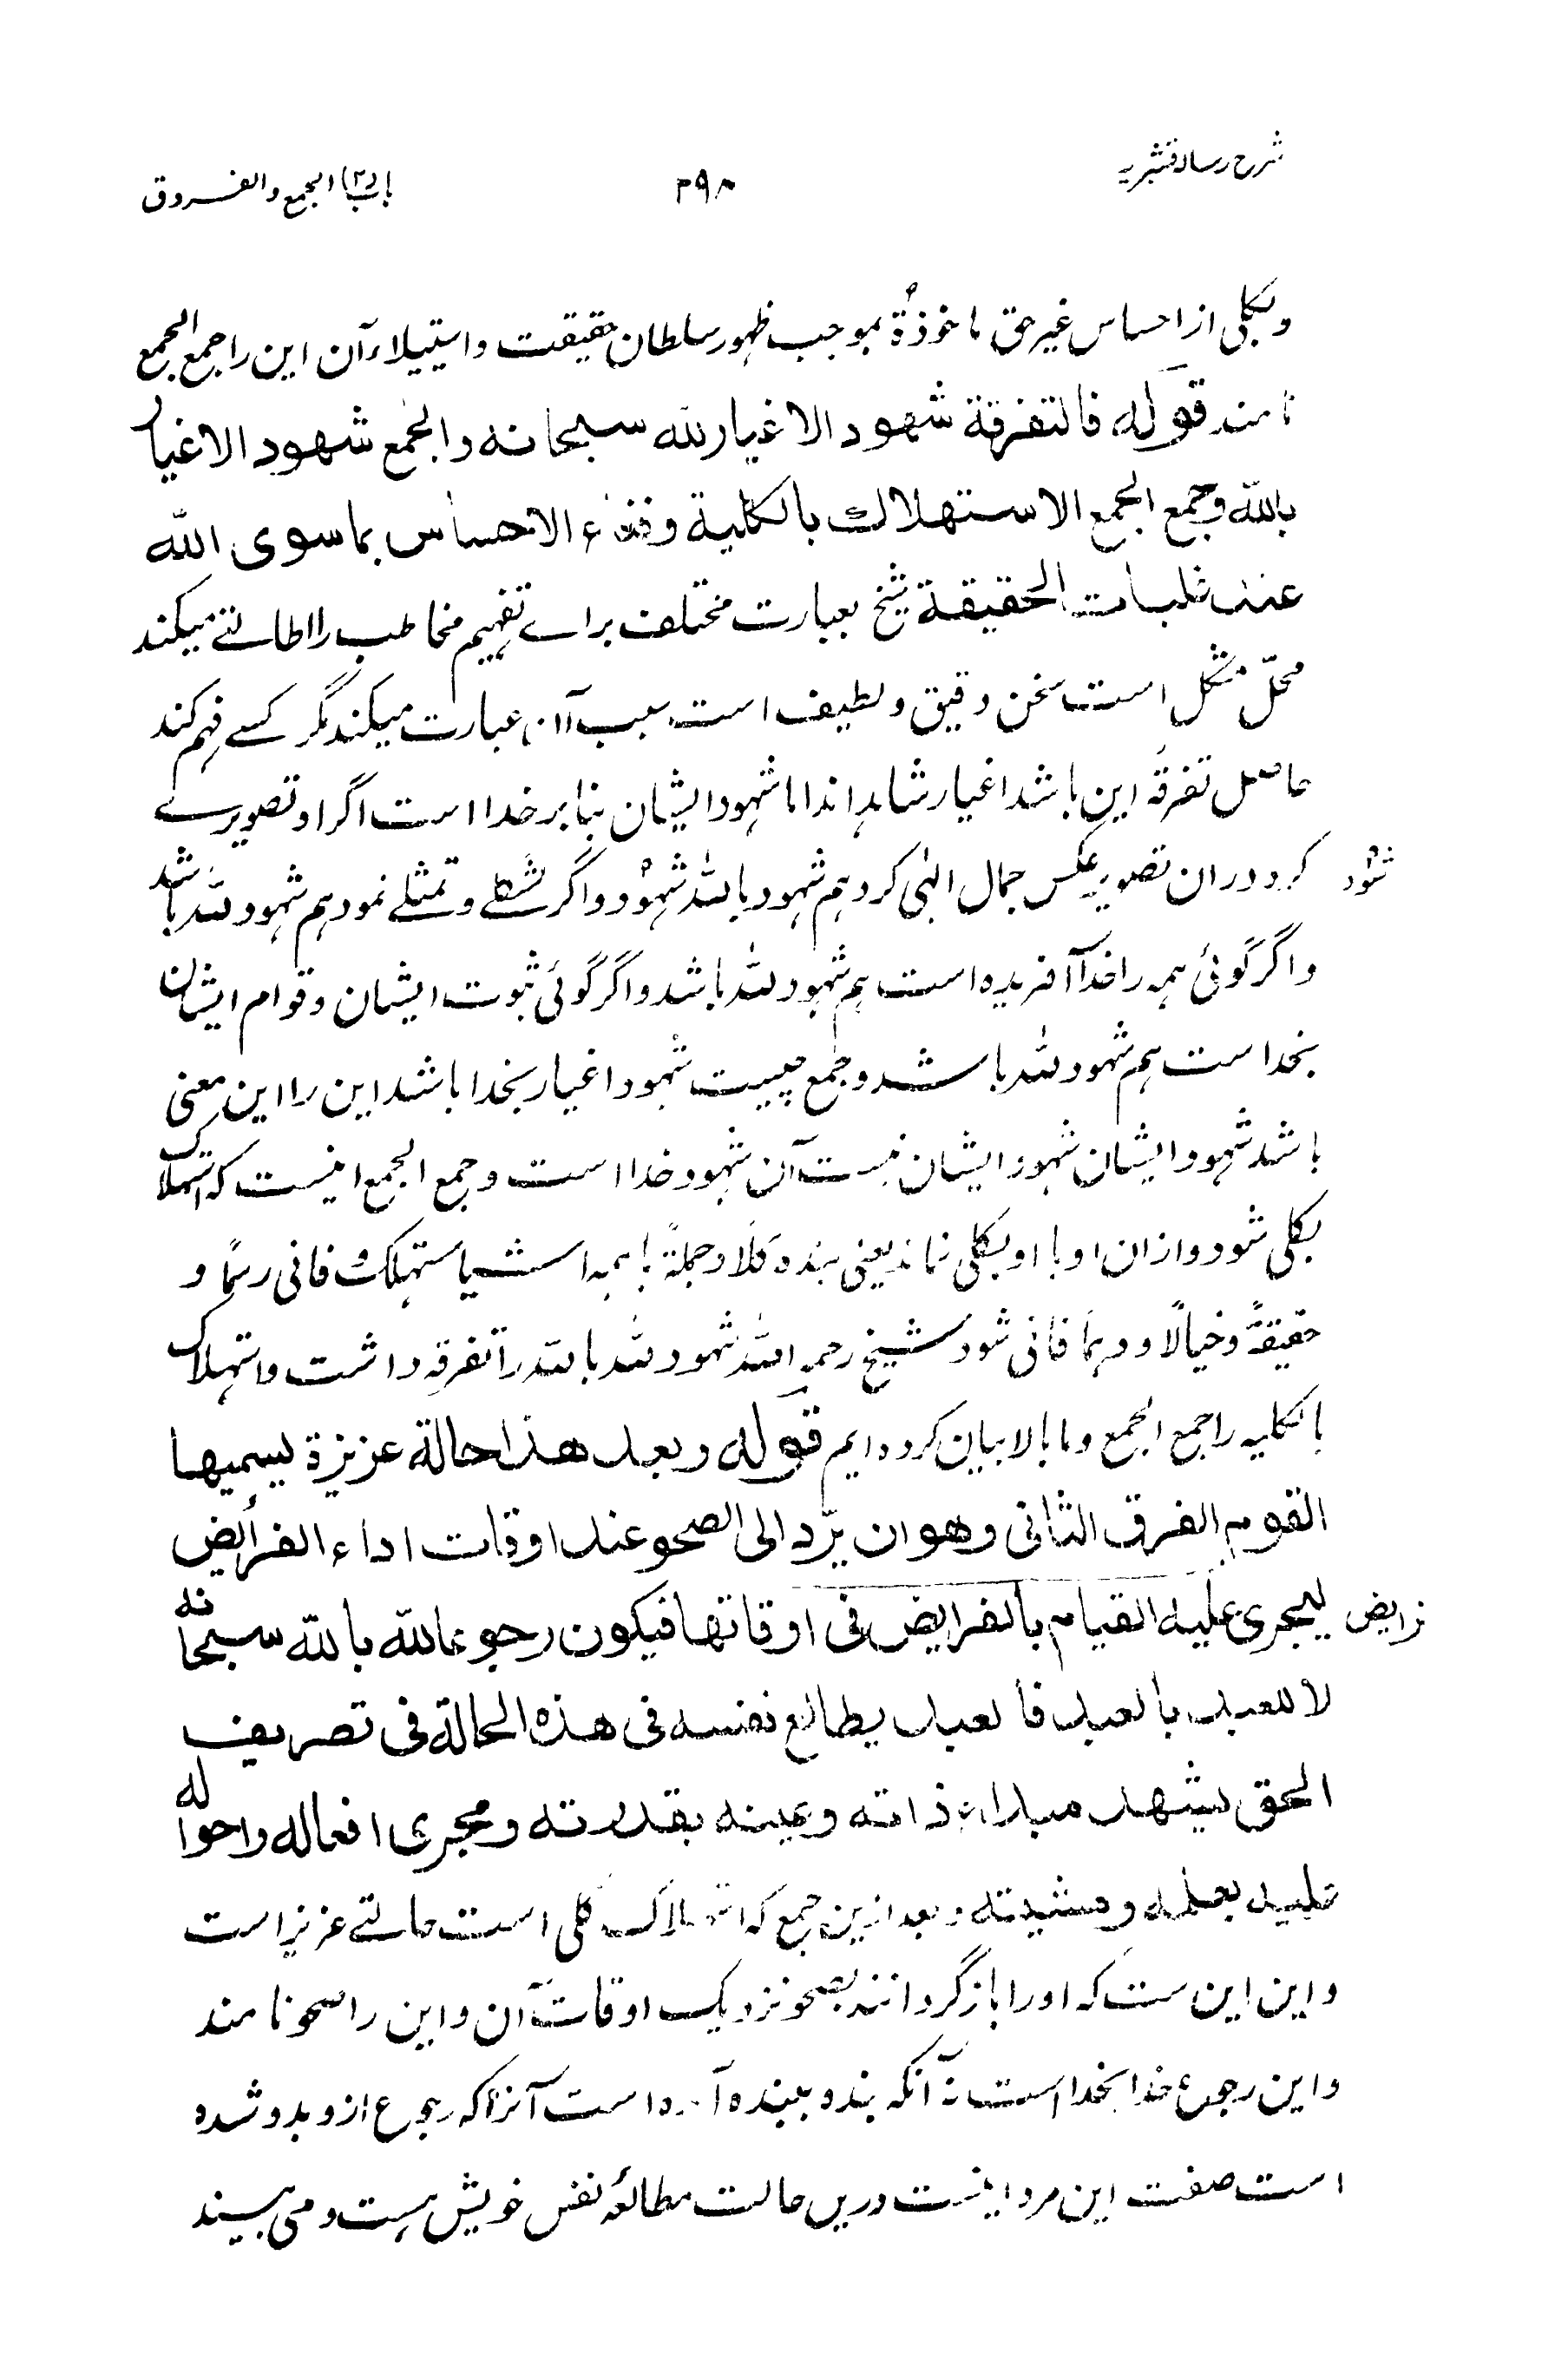 شرح رساله قشیریه
۲۹۸
باب (۲) الجمع والفروق
وبکلی از احساس غیر حق ماخوذةً بموجب ظهور سلطان حقیقت و استیلاء آن این را جمع الجمع
نامند قوله فالتفرقة شهود الاغیار لله سبحانه والجمع شهود الاغیار
بالله وجمع الجمع الاستهلاك بالکلیة وفناء الاحساس بما سوی الله
عند غلبات الحقیقة شیخ بعبارت مختلف برائے تفهیم مخاطب را اطالتے میکند
محلّ مشکل است سخن دقیق ولطیف است بسبب آن عبارت میکند مگر کسے فهم کند
حاصل تفرقه این باشد اغیار شاهد اند اما شهود ایشان بنا بر خدا است اگر او تصویرے
کرد و دران تصویر عکس جمال الٰهی کرد هم شهود بالله شهود و اگر شکلے و تمثلے نمود هم شهود لله باشد
شود
واگر گوئی همه را خدا آفریده است هم شهود لله باشد واگر گوئی ثبوت ایشان وقوام ایشان
بخداست هم شهود لله باشد وجمع چیست شهود اغیار بخدا باشد این را این معنی
باشد شهود ایشان شهود ایشان نیست آن شهود خدا است وجمع الجمع اینست که استهلاک
بکلی شود و از ان او با او بکلی نماند یعنی بنده کلًا وجملةً با همه اشیا مستهلک و فانی رسمًا و
حقیقةً وخیالًا و وهمًا فانی شود شیخ رحمه الله شهود لله بالله را تفرقه داشت واستهلاک
بالکلیه را جمع الجمع وما بالا بیان کرده ایم قوله وبعد هذا حالة عزیزة یسمیها
القوم الفرق الثانی وهو ان یرّد الی الصحو عند اوقات اداء الفرائض
لیجری علیه القیام بالفرایض فی اوقاتها فیکون رجوعا لله بالله سبحانه
فرایض
لا للعبد بالعبد فالعبد یطالع نفسه فی هذه الحالة فی تصریف
الحق یشهد مبداء ذاته وعینه بقدرته ومجری افعاله واحواله
علیه بعلمه ومشیته وبعد ازین جمع که استهلاک کلی است حالتے عزیز است
واین این ست که اورا باز گردانند بصحو نزدیک اوقات آن واین را صحو نامند
واین رجوع خدا بخدا است نه آنکه بنده ببنده آمده است آنرا که رجوع ازو بدو شده
است صفت این مرد اینست درین حالت مطالعه نفس خویش هست و می بیند